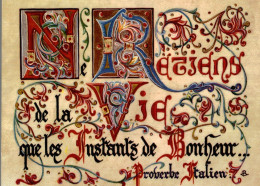 Ne Retiens
de la Vie
que les Instants de Bonheur...
Proverbe Italien